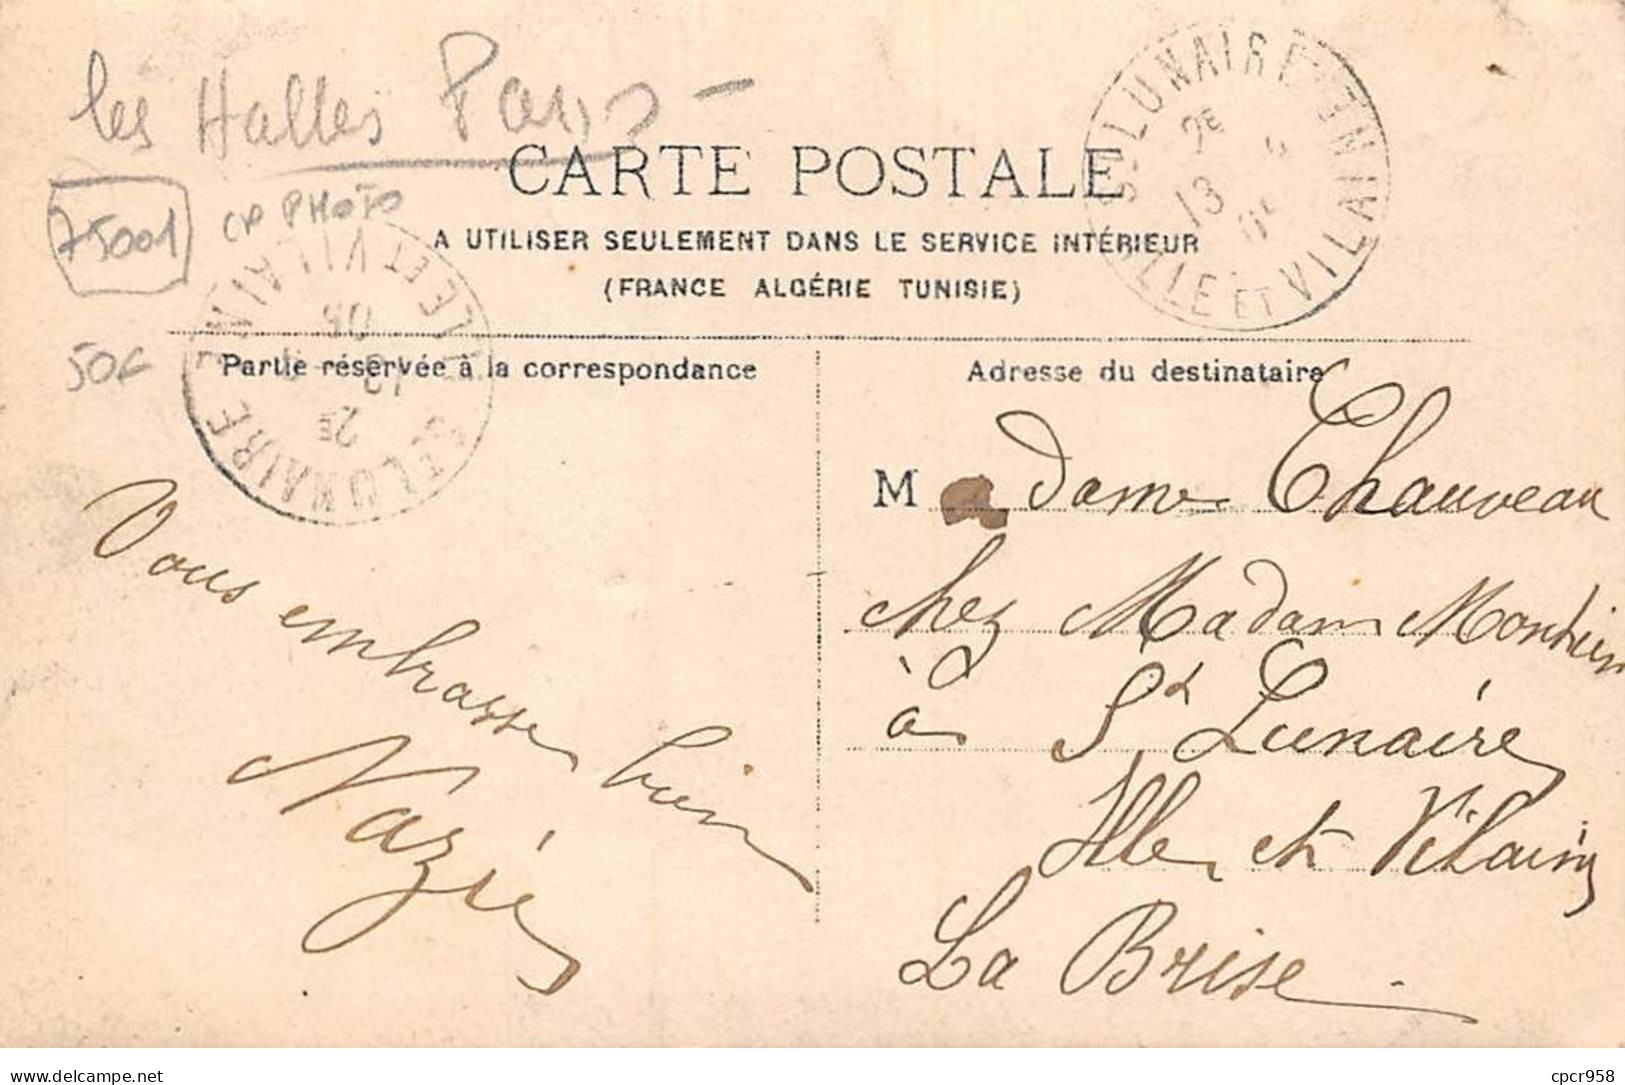 les Halles Paris -
75001
CP PHOTO
50€
CARTE POSTALE
A UTILISER SEULEMENT DANS LE SERVICE INTÉRIEUR
(FRANCE ALGÉRIE TUNISIE)
ST LUNAIRE
ILLE ET VILAINE
2E
13
ST LUNAIRE
ILLE ET VILAINE
2E
13
Partie réservée à la correspondance
Vous embrasse bien
Adresse du destinataire
Madame Chauveau
chez Madam
à St Lunaire
Ille et Vilaine
La Brise
Delcampe.net
cpcr958